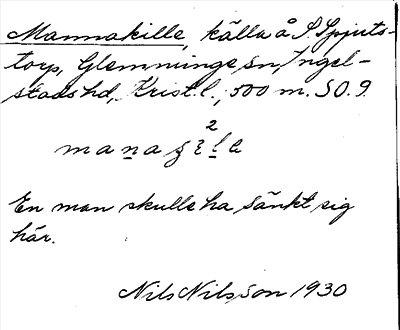 Mannakille, källa å S. Spjuts-
torp, Glemminge sn, Ingel-
stads hd, Krist. l., 500 m. S O. 9.
2
En man skulle ha sänkt sig
här.
Nils Nilsson 1930